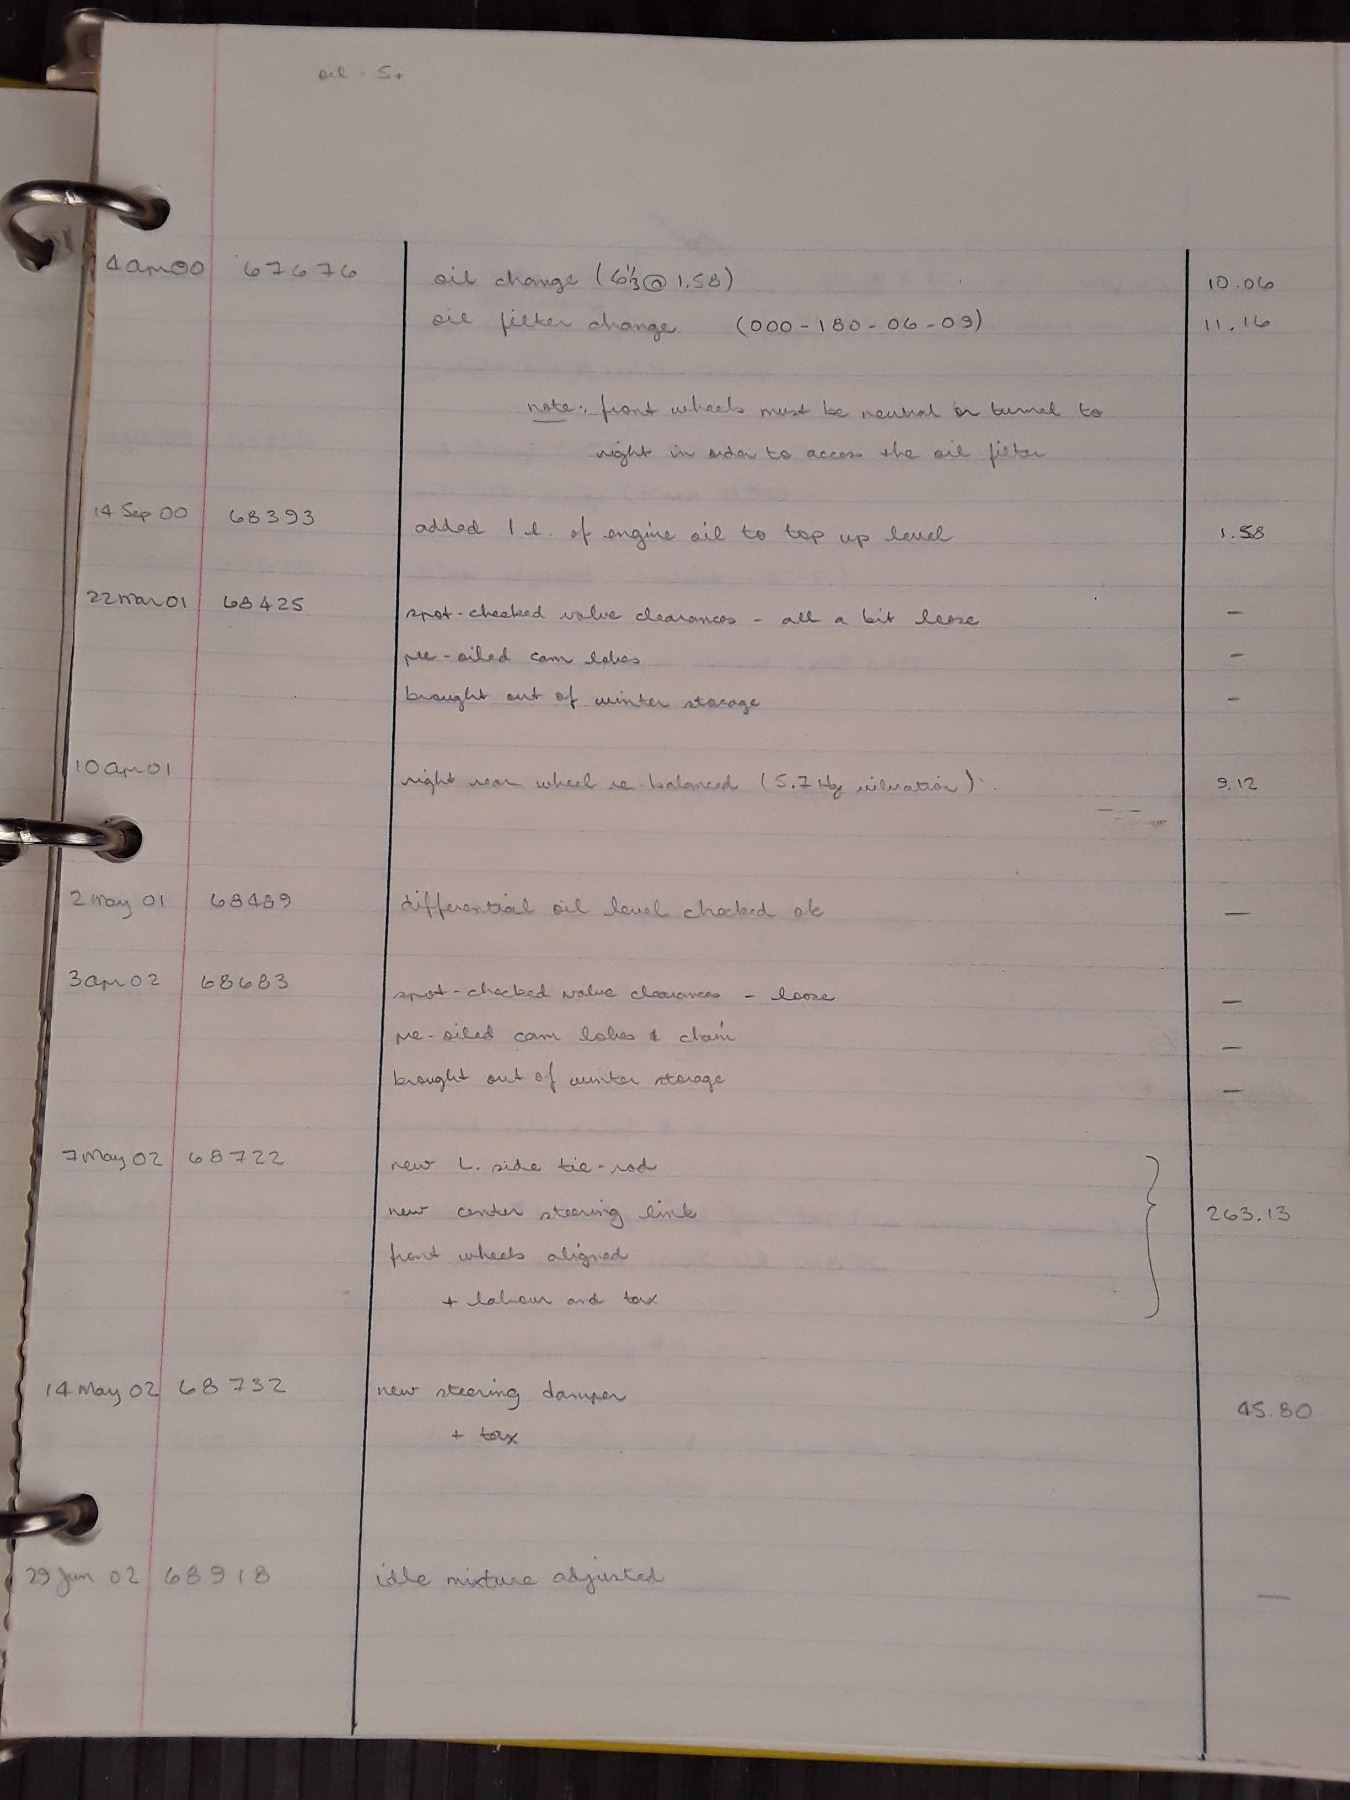 oil - 5+
4 Apr 00 67676 oil change (6⅓ @ 1.58) 10.06
oil filter change (000-180-06-09) 11.16
note: front wheels must be neutral or turned to
right in order to access the oil filter
14 Sep 00 68393 added 1 l. of engine oil to top up level 1.58
22 Mar 01 68425 spot-checked valve clearances - all a bit loose —
pre-oiled cam lobes —
brought out of winter storage —
10 Apr 01 right rear wheel re-balanced (5.7 Hz vibration) 9.12
2 May 01 68489 differential oil level checked ok —
3 Apr 02 68683 spot-checked valve clearances - loose —
pre-oiled cam lobes & chain —
brought out of winter storage —
7 May 02 68722 new L. side tie-rod
new center steering link 263.13
front wheels aligned
+ labour and tax
14 May 02 68732 new steering damper 45.80
+ tax
29 Jun 02 68918 idle mixture adjusted —